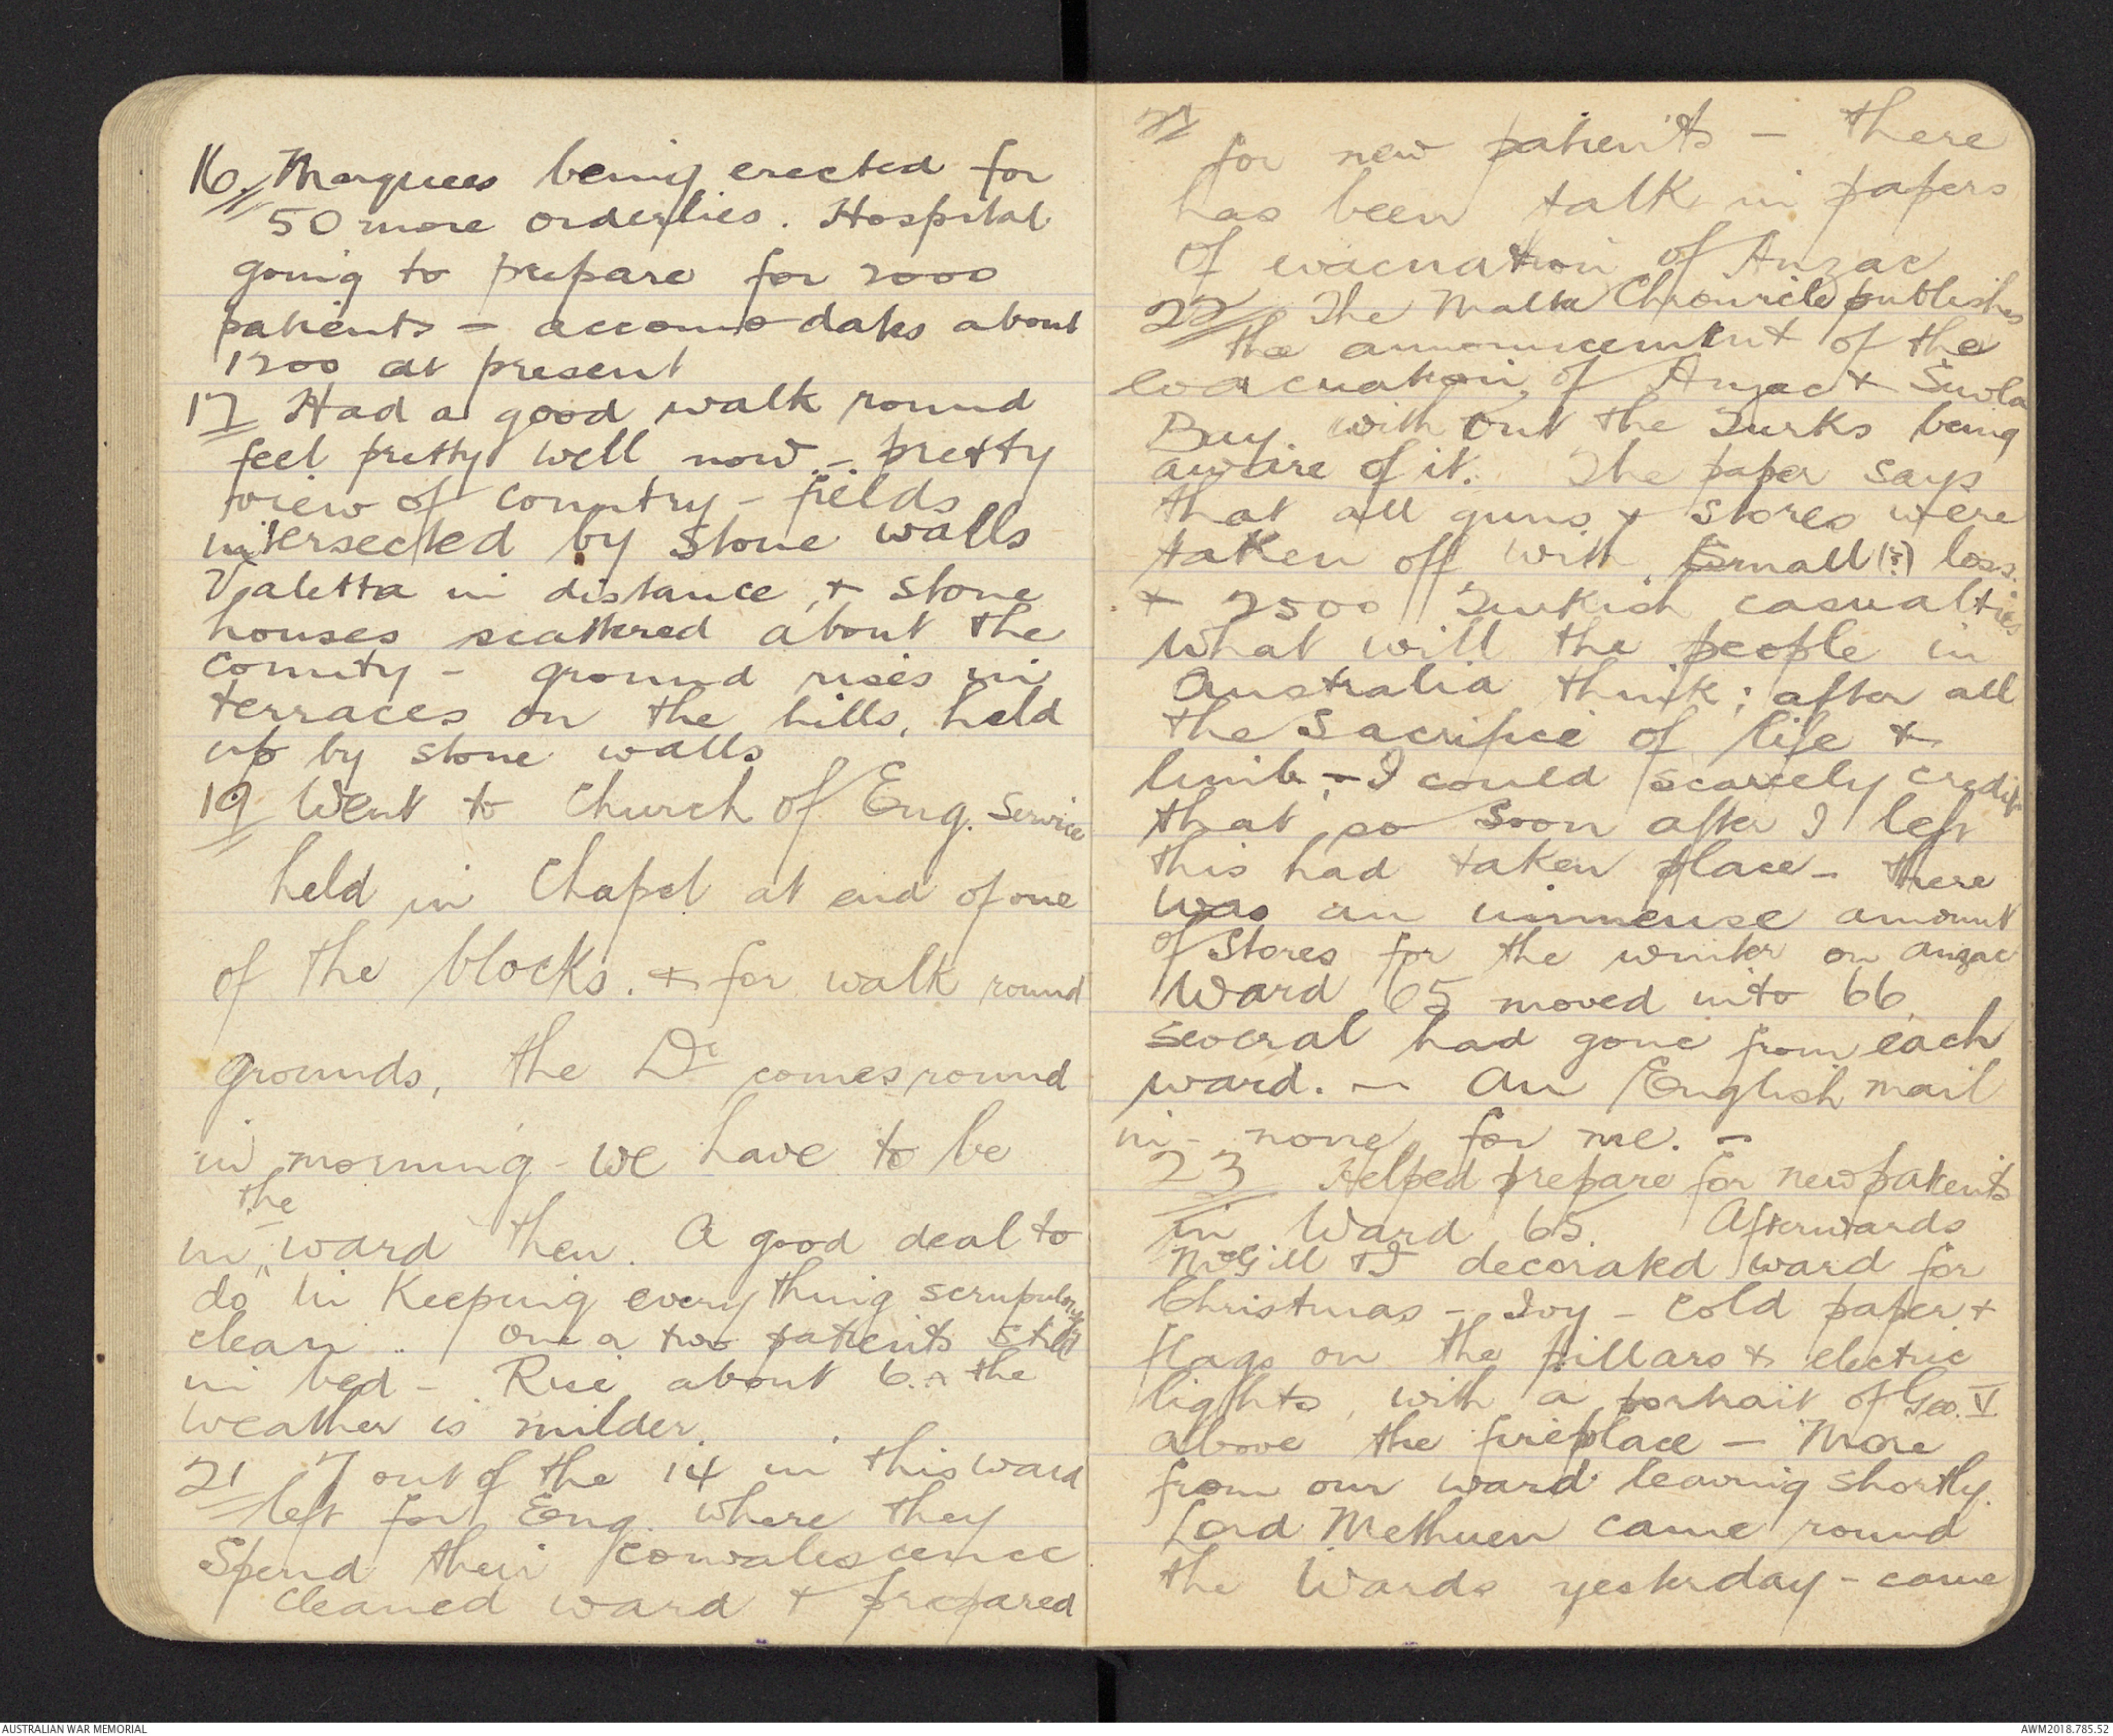 16. Marquees being erected for
50 more orderlies. Hospital
going to prepare for 2000
patients - accomodates about
1200 at present
17 Had a good walk round
feel pretty well now - pretty
view of country - fields
intersected by stone walls
Valetta in distance, + stone
houses scattered about the
county - ground rises in
terraces on the hills, held
up by stone walls
19 Went to Church of Eng. Service
held in Chapel at end of one
of the blocks. + for walk round
grounds, the Dr comes round
in morning - we have to be
the
in ward then. A good deal to
do in keeping every thing scrupulously
clean .. One or two patients still
in bed - Rise about 6. the
weather is milder.
21 7 out of the 14 in this ward
left for Eng. where they
Spend their convalescence
Cleaned ward + prepared
21
for new patients - there
has been talk in papers
of evacuation of Anzac
22 The Malta Chronicle publishes
the announcement of the
evacuation of Anzac + Suvla
Bay. with out the Turks being
aware of it. The paper says
that all guns + stores were
taken off with small (?) loss.
+ 2500 Turkish casualties
what will the people in
Australia think; after all
the Sacrifice of life +
limb, - I could scarcely credit
that so soon after I left
this had taken place - there
was an immense amount
of stores for the winter on Anzac
Ward 65 moved into 66.
several had gone from each
ward. - An English mail
in - none for me. -
23 Helped prepare for new patients
in Ward 65. Afterwards
McGill + I decorated ward for
Christmas - Ivy - cold paper +
flags on the pillars + electric
lights, with a portrait of Geo. V
above the fireplace - More
from our ward leaving shortly.
Lord Methuen came round
the Wards yesterday - came
AUSTRALIAN WAR MEMORIAL
AWM2018.785.52